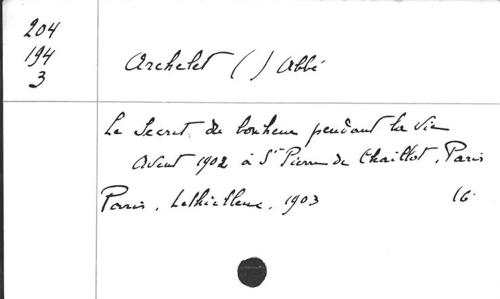 204
194
3
Archelet ( ) Abbé
Le Secret du bonheur pendant la vie
Avent 1902 à St Pierre de Chaillot. Paris
Paris. Lethielleux, 1903 16